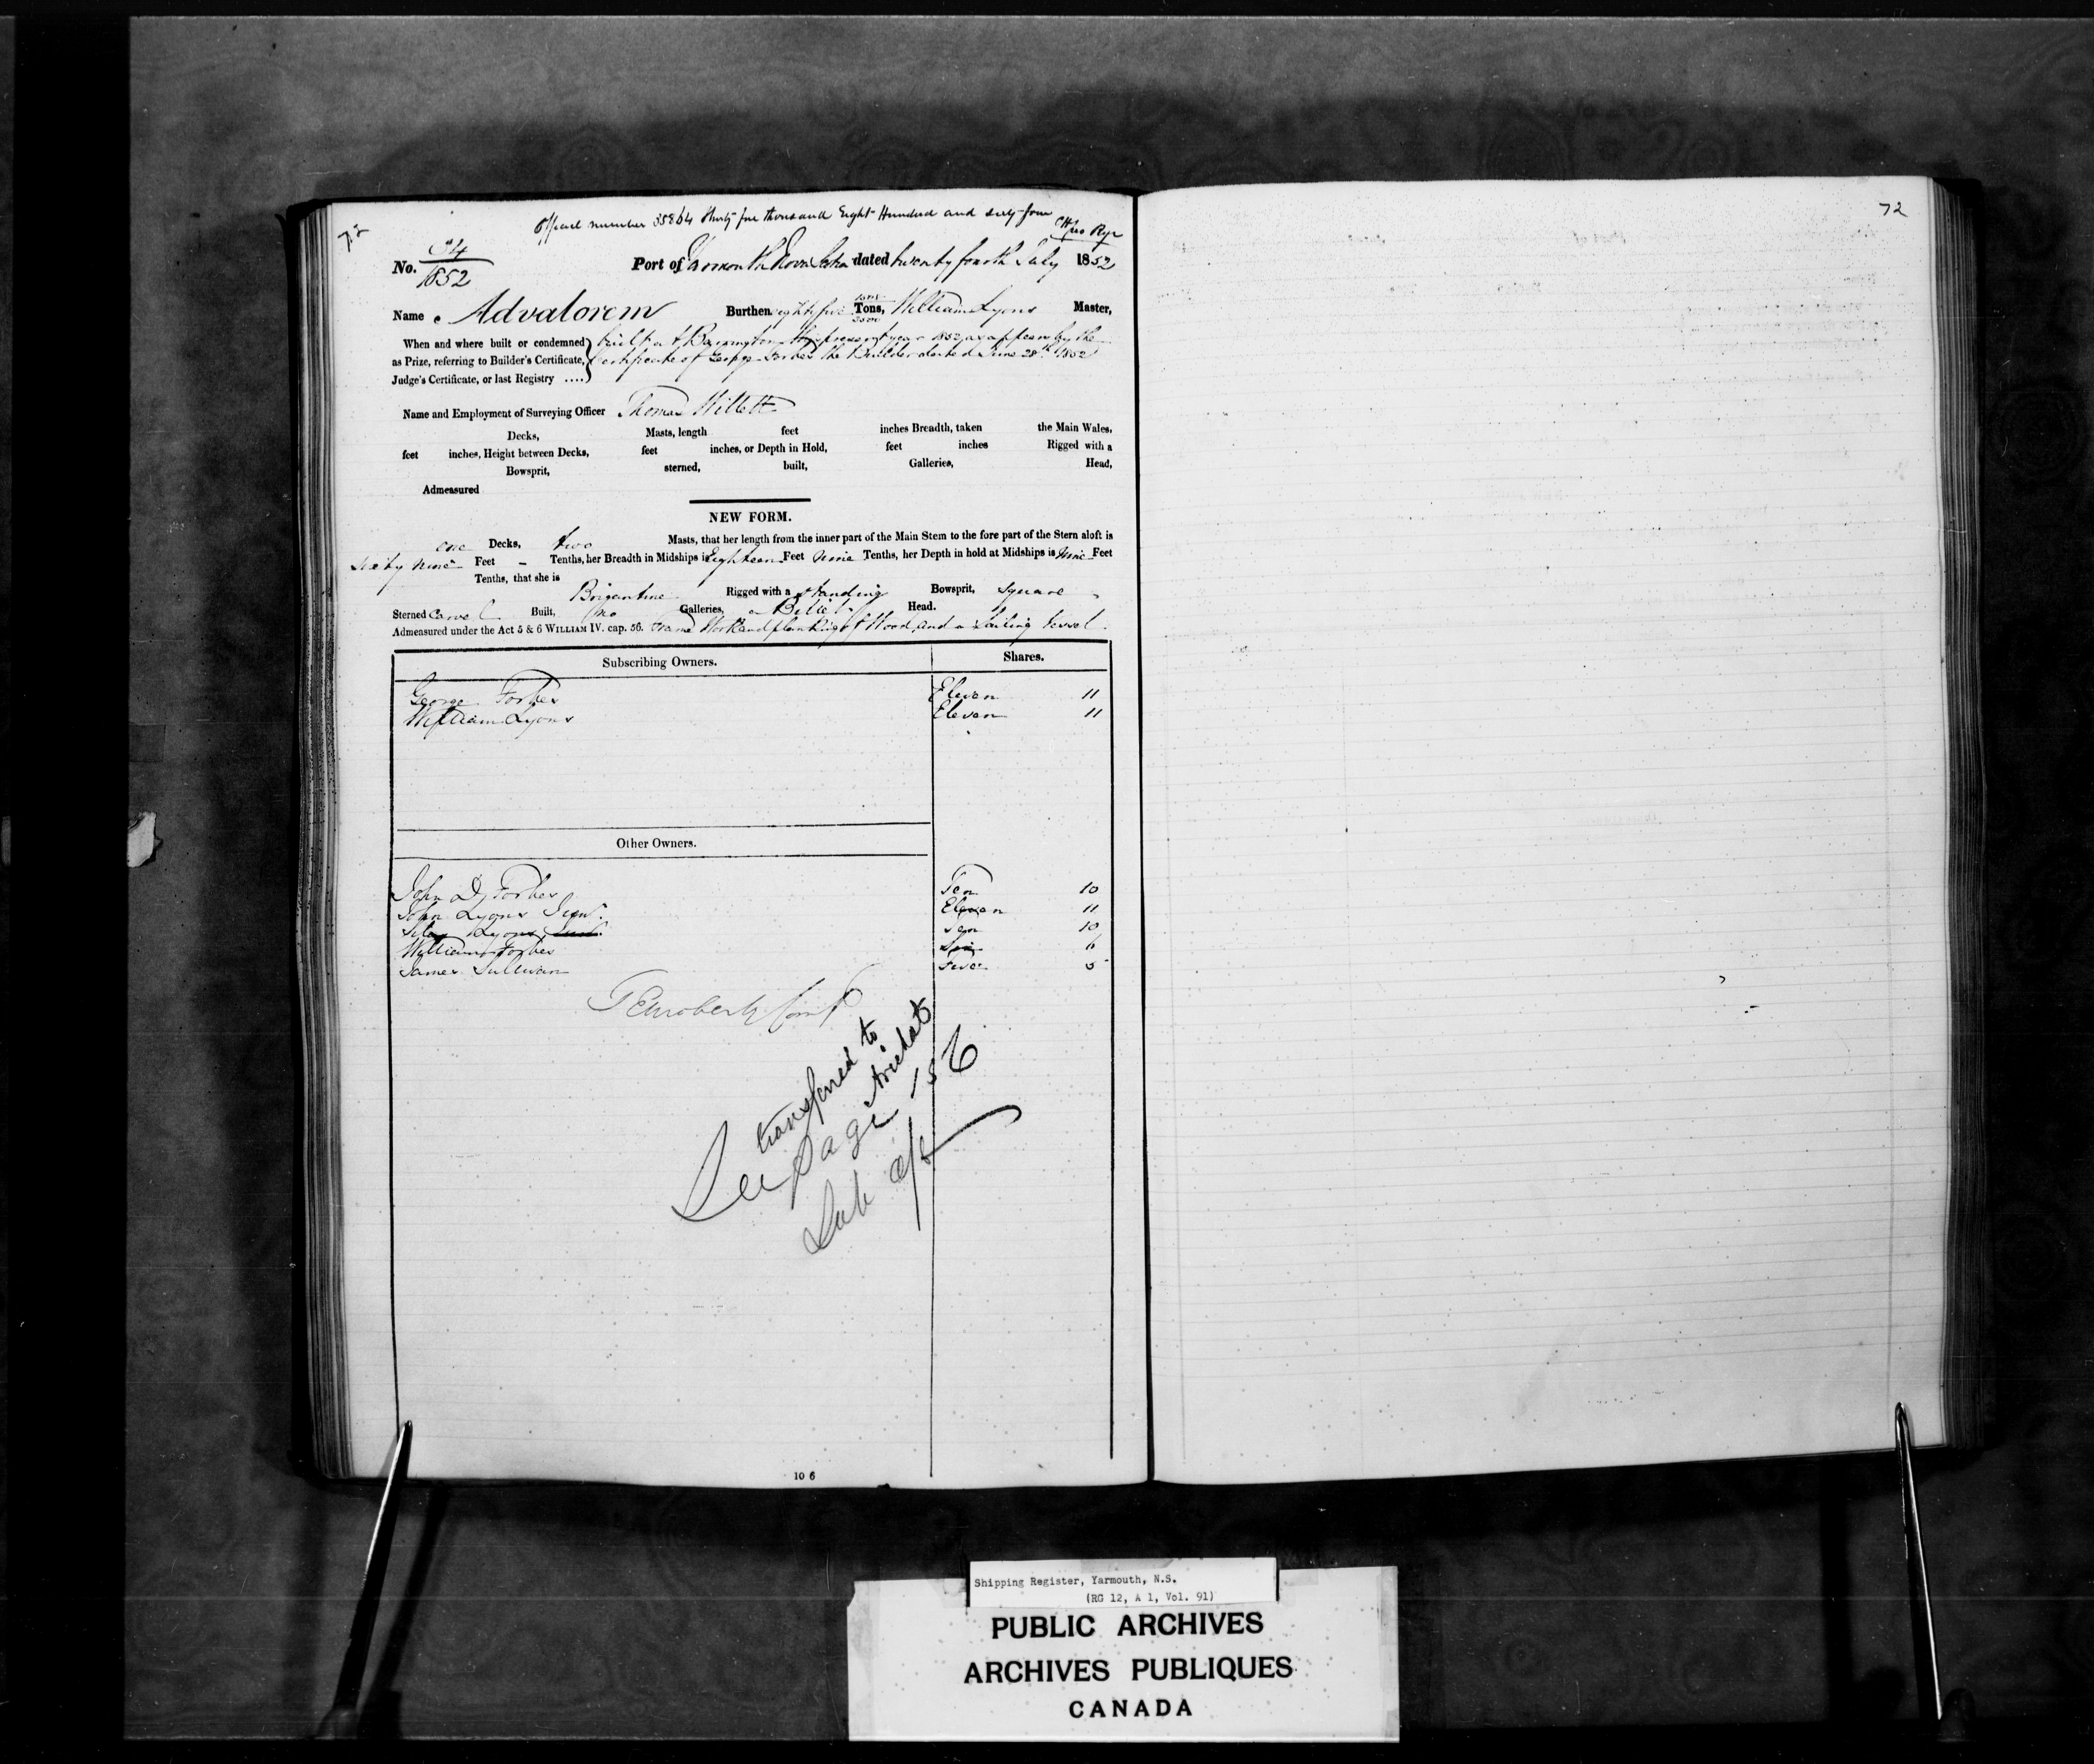 72
Official number 35864 thirty five thousand Eight Hundred and sixty four
No.
1852
Port of Yarmouth Nova Scotia dated twenty fourth July 1852
Name Advalorem Burthen eighty five Tons, William Lyons Master,
3500
When and where built or condemned
as Prize, referring to Builder's Certificate,
Judge's Certificate, or last Registry ....
built at Barrington the present year 1852, as appears by the
Certificate of George Forbes the Builder dated June 28th 1852
Name and Employment of Surveying Officer Thomas Willett
Decks, Masts, length feet inches Breadth, taken the Main Wales,
feet inches, Height between Decks, feet inches, or Depth in Hold, feet inches Rigged with a
Bowsprit, sterned, built, Galleries, Head,
Admeasured
NEW FORM.
one Decks, two Masts, that her length from the inner part of the Main Stem to the fore part of the Stern aloft is
Sixty nine Feet - Tenths, her Breadth in Midships is Eighteen Feet Nine Tenths, her Depth in hold at Midships is Nine Feet
Tenths, that she is Brigantine Rigged with a standing Bowsprit, square
Sterned Carvel Built, no Galleries, a Billet Head.
Admeasured under the Act 5 & 6 WILLIAM IV. cap. 56. Frame Work and planking of Wood, and a Sailing Vessel.
Subscribing Owners. Shares.
George Forbes Eleven 11
William Lyons Eleven 11
Other Owners.
John D. Forbes Ten 10
John Lyons Junr. Eleven 11
Lyons Ten 10
William Forbes Six 6
James Sullivan Five 5
transferred to
Arichat
See page 156
Sub
10 6
72
Shipping Register, Yarmouth, N.S.
(RG 12, A 1, Vol. 91)
PUBLIC ARCHIVES
ARCHIVES PUBLIQUES
CANADA